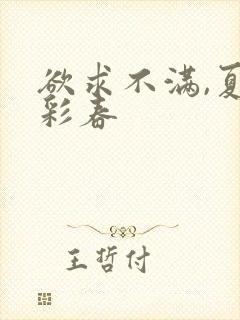 欲求不满,夏
彩春
王哲付